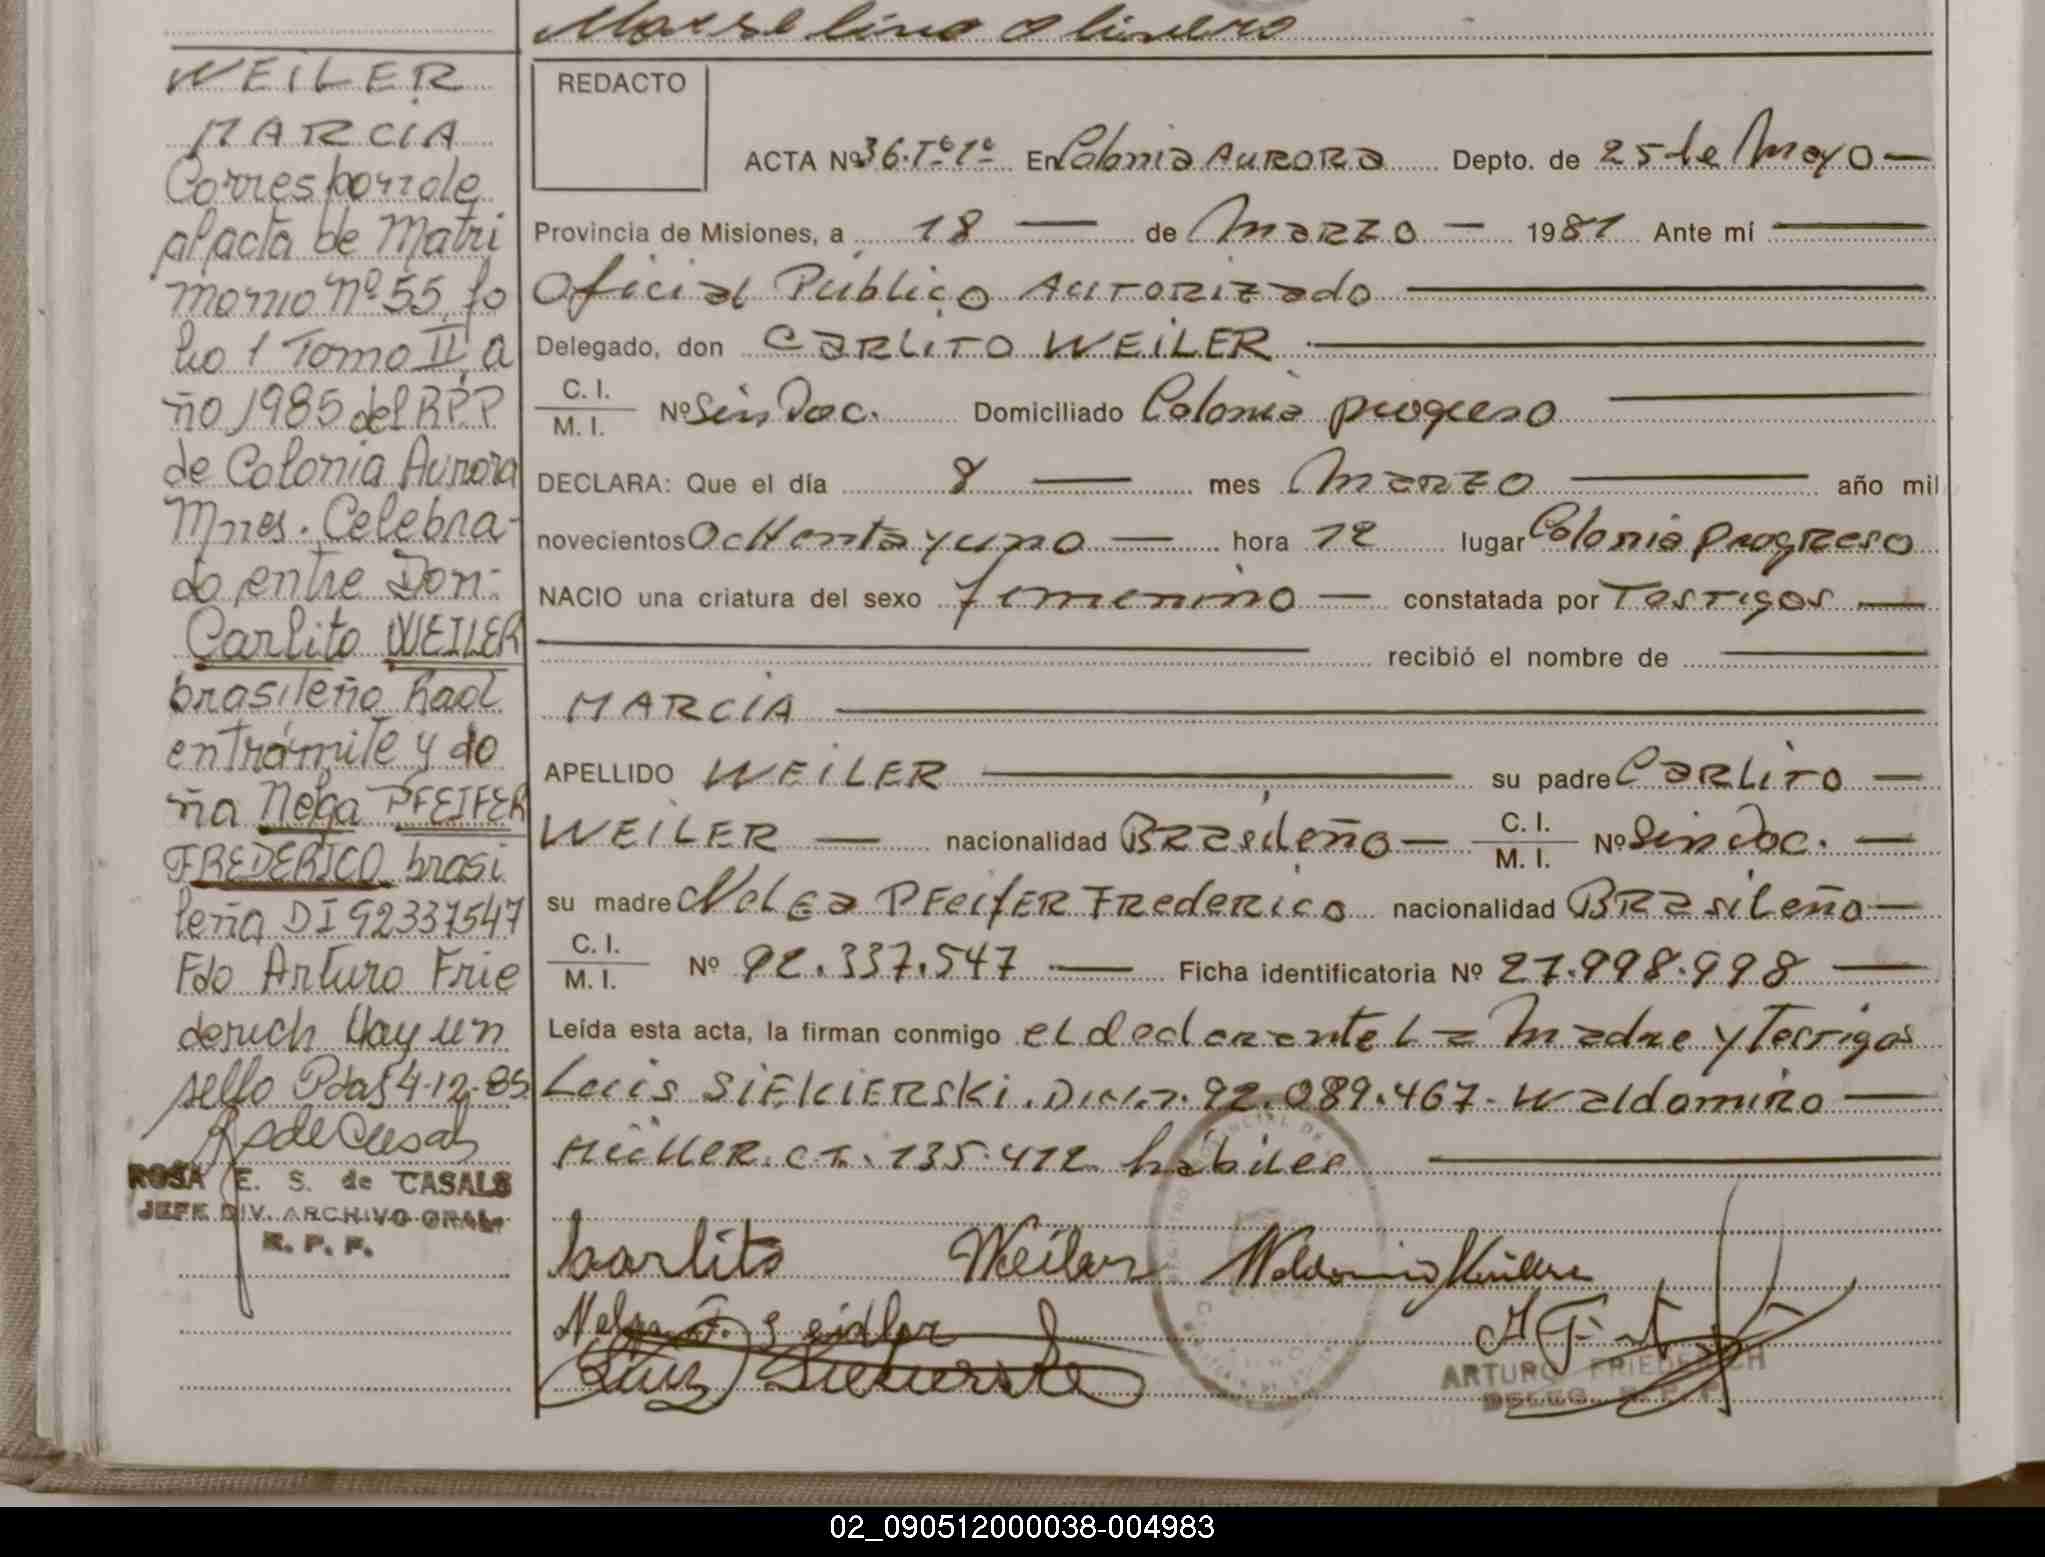 WEILER
MARCIA
Corresponde
al acta de Matri
monio Nº 55, fo
lio 1 Tomo II, a
ño 1985 del R.P.P
de Colonia Aurora
Mnes. Celebra-
do entre Don:
Carlito WEILER
brasileño Rad
en trámite y do
ña Nelga PFEIFER
FREDERICO brasi
leña DI 92337547
Fdo Arturo Frie
derich Hay un
sello Pdas 4-12-85
ROSA E. S. de CASALS
JEFE DIV. ARCHIVO GRAL.
R. P. P.
REDACTO
ACTA Nº 36. Tº 1º En Colonia AURORA Depto. de 25 de Mayo —
Provincia de Misiones, a 18 — de MARZO — 1981 Ante mí —
Oficial Público AUTORIZADO —
Delegado, don CARLITO WEILER —
C. I.
M. I. Nº Sin Doc. Domiciliado Colonia progreso —
DECLARA: Que el día 8 — mes MARZO — año mil
novecientos Ochenta y uno — hora 12 lugar Colonia progreso
NACIO una criatura del sexo femenino — constatada por Testigos —
— recibió el nombre de —
MARCIA —
APELLIDO WEILER — su padre CARLITO —
WEILER — nacionalidad BRAsileño — C. I.
M. I. Nº Sin Doc. —
su madre NELGA PFeifER FREDERICO nacionalidad BRAsileño —
C. I.
M. I. Nº 92.337.547 — Ficha identificatoria Nº 27.998.998 —
Leída esta acta, la firman conmigo el declarante La Madre y Testigos
Luis SIEKIERSKI. D.N.I. 92.089.467. Waldomiro —
MüLLER. C.I. 135.412 hábiles —
Carlito Weiler Waldomiro Müller
ARTURO FRIEDERICH
DELEG. R. P. P.
02_090512000038-004983